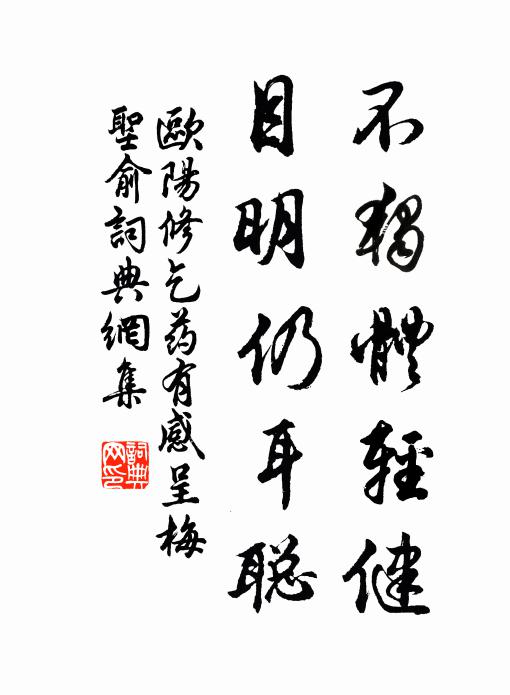 不獨體輕健
目明仍耳聰
歐陽修乞药有感呈梅
聖俞詞典網集
詞典网印